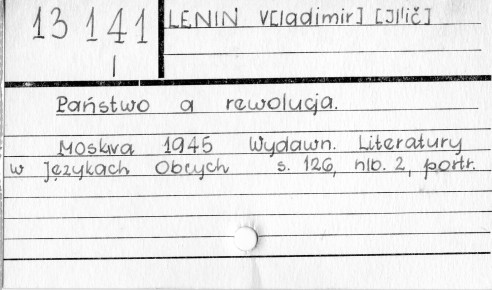 13 141
I
LENIN V[ladimir] [Il'ič]
Państwo a rewolucja.
Moskwa 1945 Wydawn. Literatury
w Językach Obcych s. 126, nlb. 2, portr.